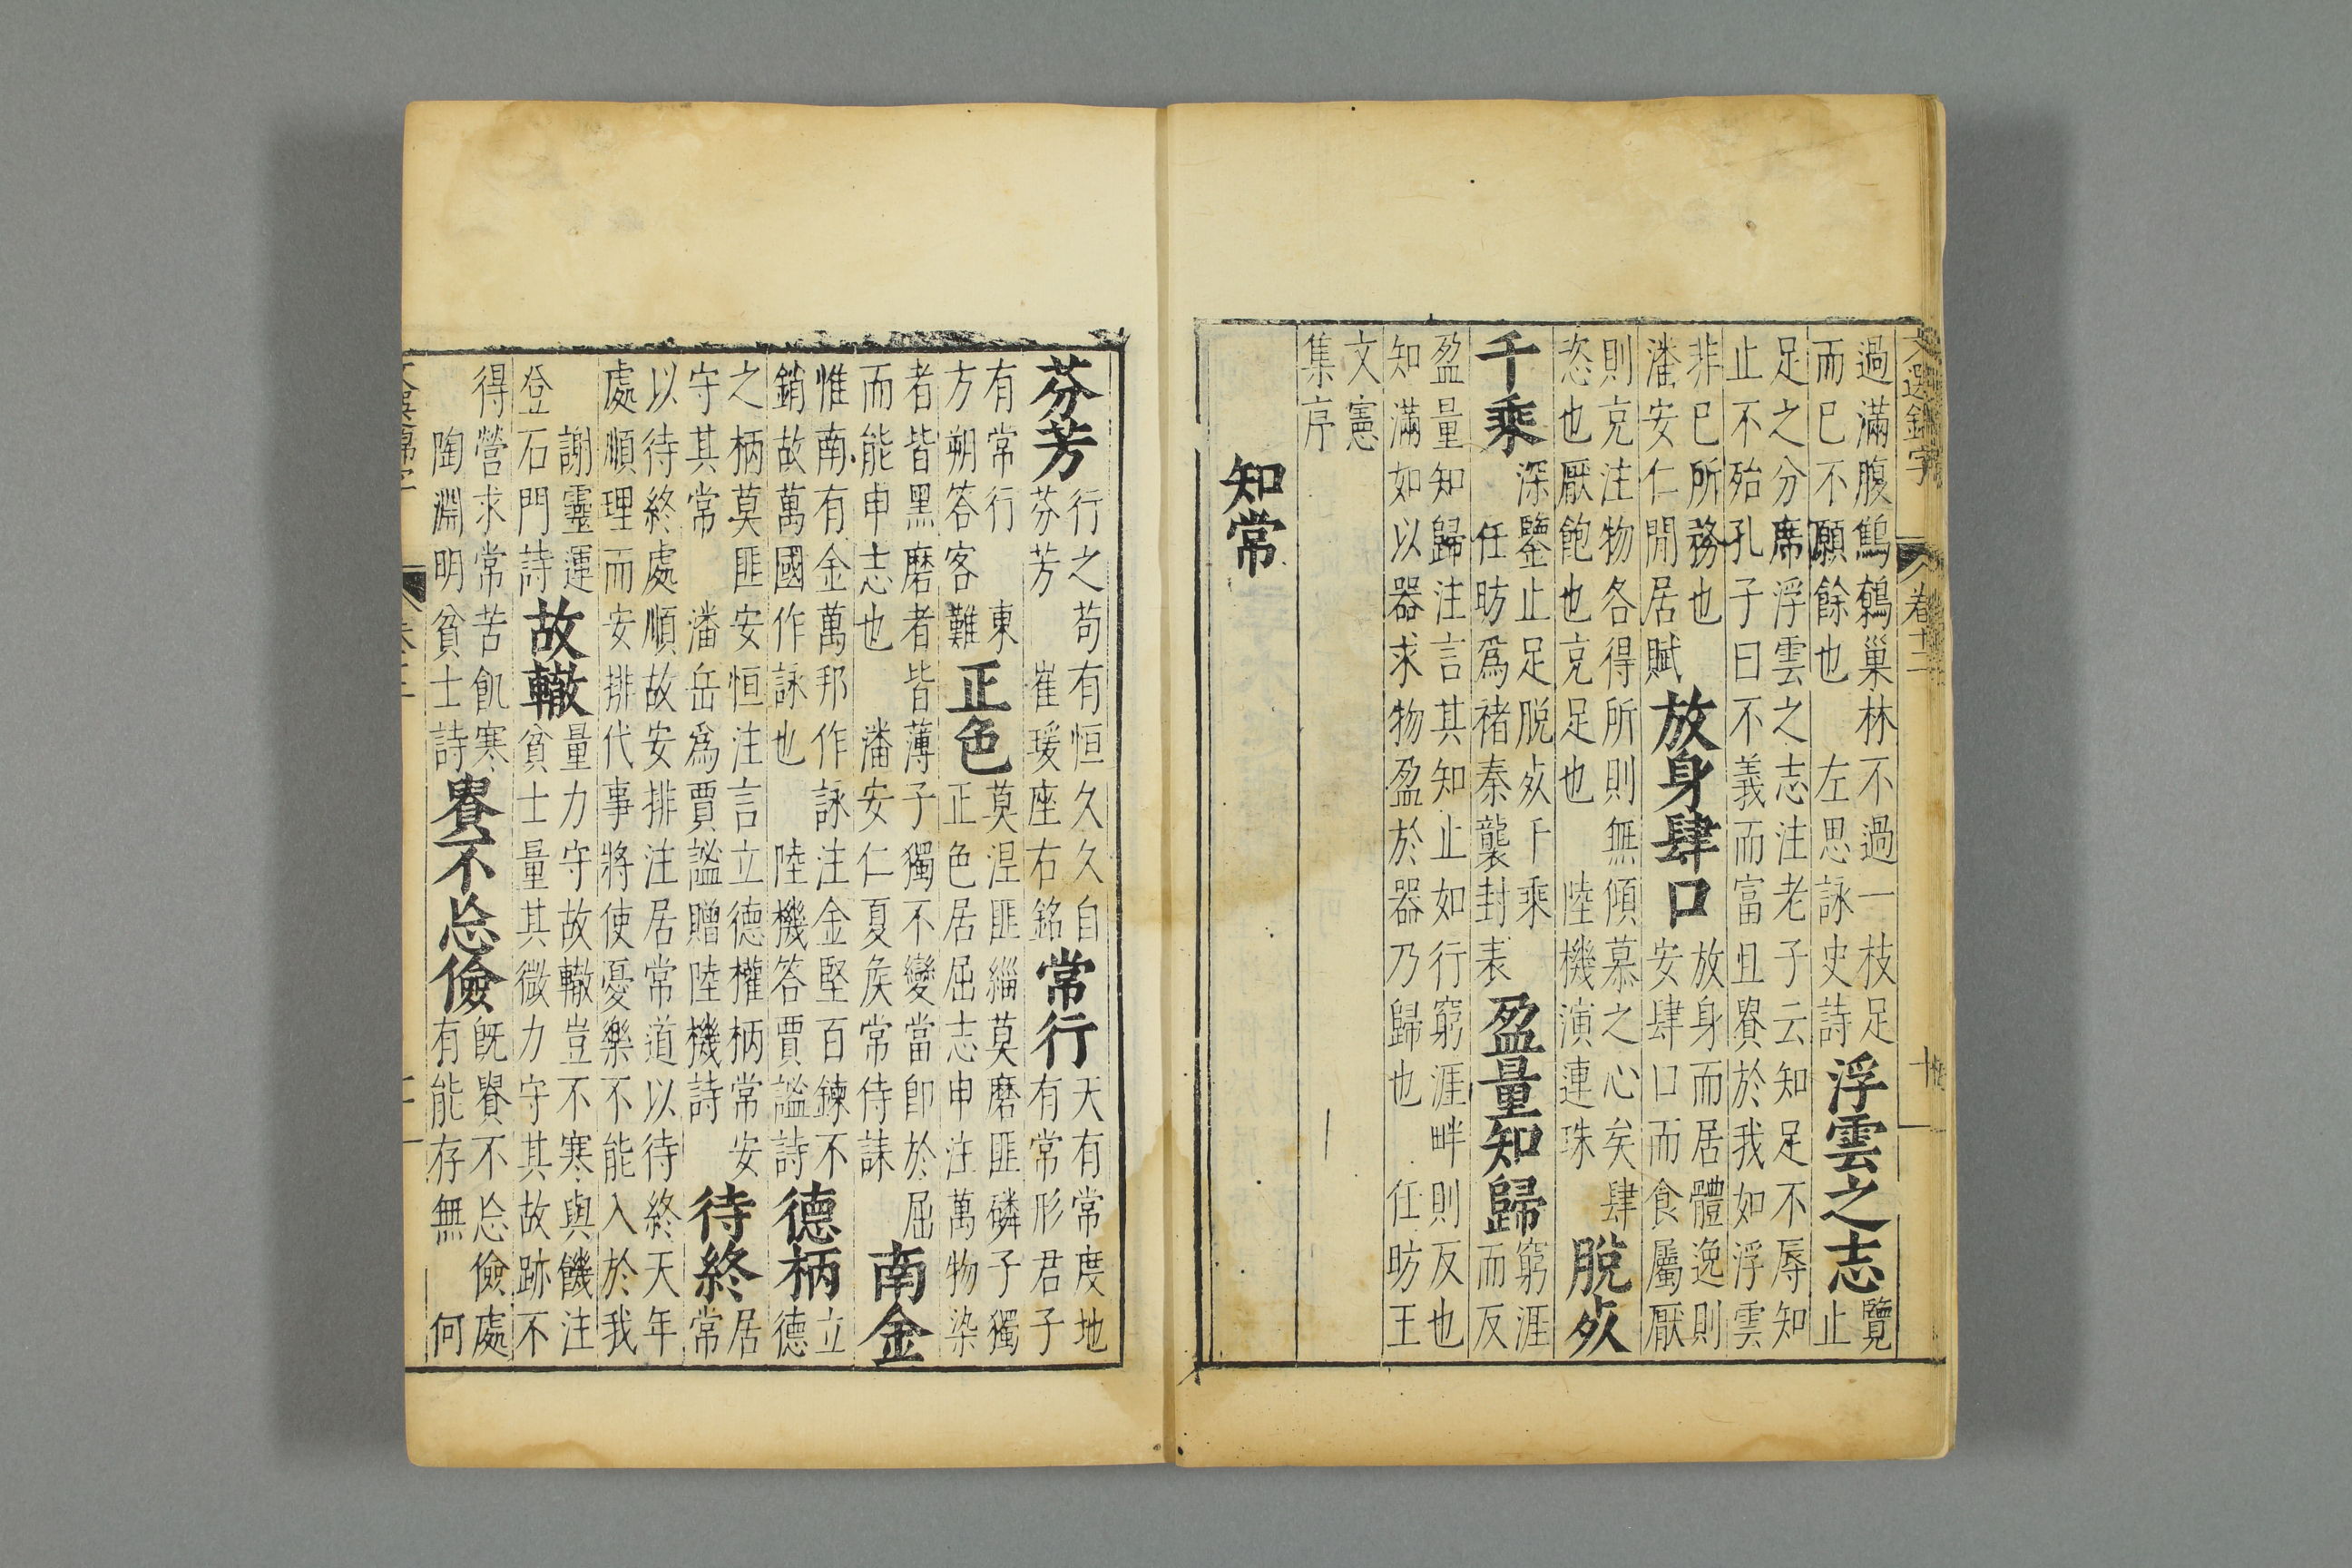 文選錦字 卷十二 十
過滿腹鷦鷯巢林不過一枝足
而已不願餘也 左思詠史詩
浮雲之志
覽
止
足之分庶浮雲之志注老子云知足不辱知
止不殆孔子曰不義而富且貴於我如浮雲
非已所務也
潘安仁閒居賦
放身肆口
放身而居體逸則
安肆口而食屬厭
則克注物各得所則無傾慕之心矣肆
恣也厭飽也克足也 陸機演連珠
脫屣
千乘
深鑒止足脫屣千乘
任昉爲禇秦襲封表
盈量知歸
窮涯
而反
盈量知歸注言其知止如行窮涯畔則反也
知滿如以器求物盈於器乃歸也 任昉王
文憲
集序
知常
芬芳
行之苟有恒久久自
芬芳 崔瑗座右銘
常行
天有常度地
有常形君子
有常行 東
方朔答客難
正色
莫涅匪緇莫磨匪磷子獨
正色居屈志申注萬物染
者皆黑磨者皆薄子獨不變當卽於屈
而能申志也 潘安仁夏矦常侍誄
南金
惟南有金萬邦作詠注金堅百鍊不
銷故萬國作詠也 陸機答賈謐詩
德柄
立
德
之柄莫匪安恒注言立德權柄常安
守其常 潘岳爲賈謐贈陸機詩
待終
居
常
以待終處順故安排注居常道以待終天年
處順理而安排代事將使憂樂不能入於我
謝靈運
登石門詩
故轍
量力守故轍豈不寒與饑注
貧士量其微力守其故跡不
得營求常苦飢寒
陶淵明貧士詩
貴不忘儉
旣貴不忘儉處
有能存無 何